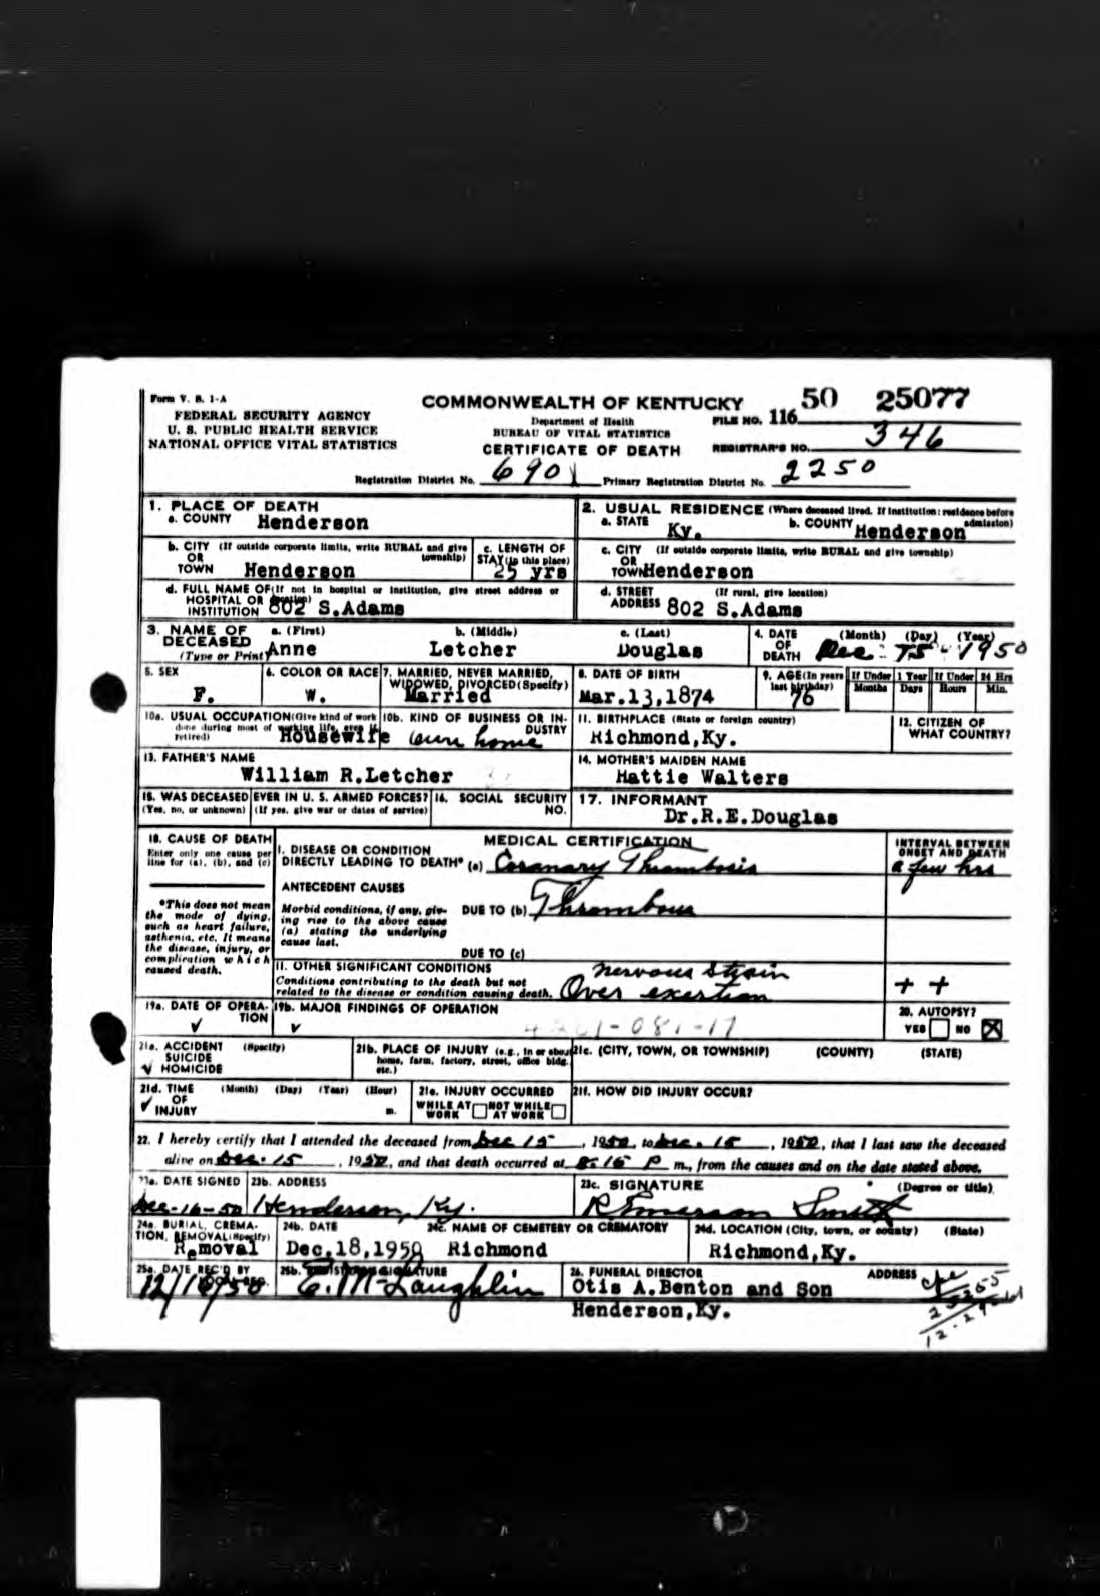 Form V. S. 1-A
FEDERAL SECURITY AGENCY
U. S. PUBLIC HEALTH SERVICE
NATIONAL OFFICE VITAL STATISTICS
COMMONWEALTH OF KENTUCKY
Department of Health
BUREAU OF VITAL STATISTICS
CERTIFICATE OF DEATH
FILE NO. 116 50 25077
REGISTRAR'S NO. 346
Registration District No. 6901 Primary Registration District No. 2250
1. PLACE OF DEATH
a. COUNTY Henderson
2. USUAL RESIDENCE (Where deceased lived. If institution: residence before admission)
a. STATE Ky. b. COUNTY Henderson
b. CITY (If outside corporate limits, write RURAL and give township)
OR
TOWN Henderson
c. LENGTH OF
STAY (in this place)
25 yrs
c. CITY (If outside corporate limits, write RURAL and give township)
OR
TOWN Henderson
d. FULL NAME OF (If not in hospital or institution, give street address or location)
HOSPITAL OR
INSTITUTION 802 S.Adams
d. STREET (If rural, give location)
ADDRESS 802 S.Adams
3. NAME OF DECEASED
(Type or Print)
a. (First) b. (Middle) c. (Last)
Anne Letcher Douglas
4. DATE OF DEATH (Month) (Day) (Year)
Dec 15 1950
5. SEX
F.
6. COLOR OR RACE
W.
7. MARRIED, NEVER MARRIED,
WIDOWED, DIVORCED (Specify)
Married
8. DATE OF BIRTH
Mar.13,1874
9. AGE (In years last birthday)
76
If Under 1 Year
Months Days
If Under 24 Hrs
Hours Min.
10a. USUAL OCCUPATION (Give kind of work done during most of working life, even if retired)
Housewife
10b. KIND OF BUSINESS OR INDUSTRY
own home
11. BIRTHPLACE (State or foreign country)
Richmond,Ky.
12. CITIZEN OF
WHAT COUNTRY?
13. FATHER'S NAME
William R.Letcher
14. MOTHER'S MAIDEN NAME
Hattie Walters
15. WAS DECEASED EVER IN U. S. ARMED FORCES?
(Yes, no, or unknown) (If yes, give war or dates of service)
16. SOCIAL SECURITY
NO.
17. INFORMANT
Dr.R.E.Douglas
18. CAUSE OF DEATH
Enter only one cause per
line for (a), (b), and (c)
*This does not mean
the mode of dying,
such as heart failure,
asthenia, etc. It means
the disease, injury, or
complication which
caused death.
MEDICAL CERTIFICATION
I. DISEASE OR CONDITION
DIRECTLY LEADING TO DEATH* (a) Coronary Thrombosis
INTERVAL BETWEEN
ONSET AND DEATH
a few hrs
ANTECEDENT CAUSES
Morbid conditions, if any, giving rise to the above cause
(a) stating the underlying
cause last.
DUE TO (b) Thrombus
DUE TO (c)
II. OTHER SIGNIFICANT CONDITIONS
Conditions contributing to the death but not
related to the disease or condition causing death.
nervous strain
Over exertion
+ +
19a. DATE OF OPERATION
19b. MAJOR FINDINGS OF OPERATION
20. AUTOPSY?
YES NO
21a. ACCIDENT (Specify)
SUICIDE
HOMICIDE
21b. PLACE OF INJURY (e.g., in or about
home, farm, factory, street, office bldg.
etc.)
21c. (CITY, TOWN, OR TOWNSHIP) (COUNTY) (STATE)
21d. TIME (Month) (Day) (Year) (Hour)
OF
INJURY m.
21e. INJURY OCCURRED
WHILE AT WORK NOT WHILE AT WORK
21f. HOW DID INJURY OCCUR?
22. I hereby certify that I attended the deceased from Dec 15, 1950, to Dec. 15, 1950, that I last saw the deceased
alive on Dec. 15, 1950, and that death occurred at 8:15 P m., from the causes and on the date stated above.
23a. DATE SIGNED
Dec-16-50
23b. ADDRESS
Henderson, Ky.
23c. SIGNATURE (Degree or title)
R Emerson Smith
24a. BURIAL, CREMATION, REMOVAL (Specify)
Removal
24b. DATE
Dec.18,1950
24c. NAME OF CEMETERY OR CREMATORY
Richmond
24d. LOCATION (City, town, or county) (State)
Richmond,Ky.
25a. DATE REC'D BY LOCAL REG.
25b. REGISTRAR'S SIGNATURE
E. McLaughlin
26. FUNERAL DIRECTOR ADDRESS
Otis A.Benton and Son
Henderson,Ky.